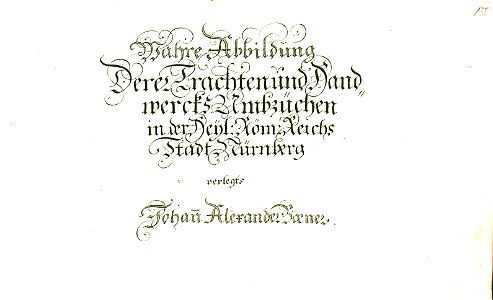 Wahre Abbildung
Derer Trachten und Hand
wercks Umbzüchen
in der Heÿl: Röm: Reichs
Stadt Nürnberg
verlegts
Johañ Alexander Bœner.